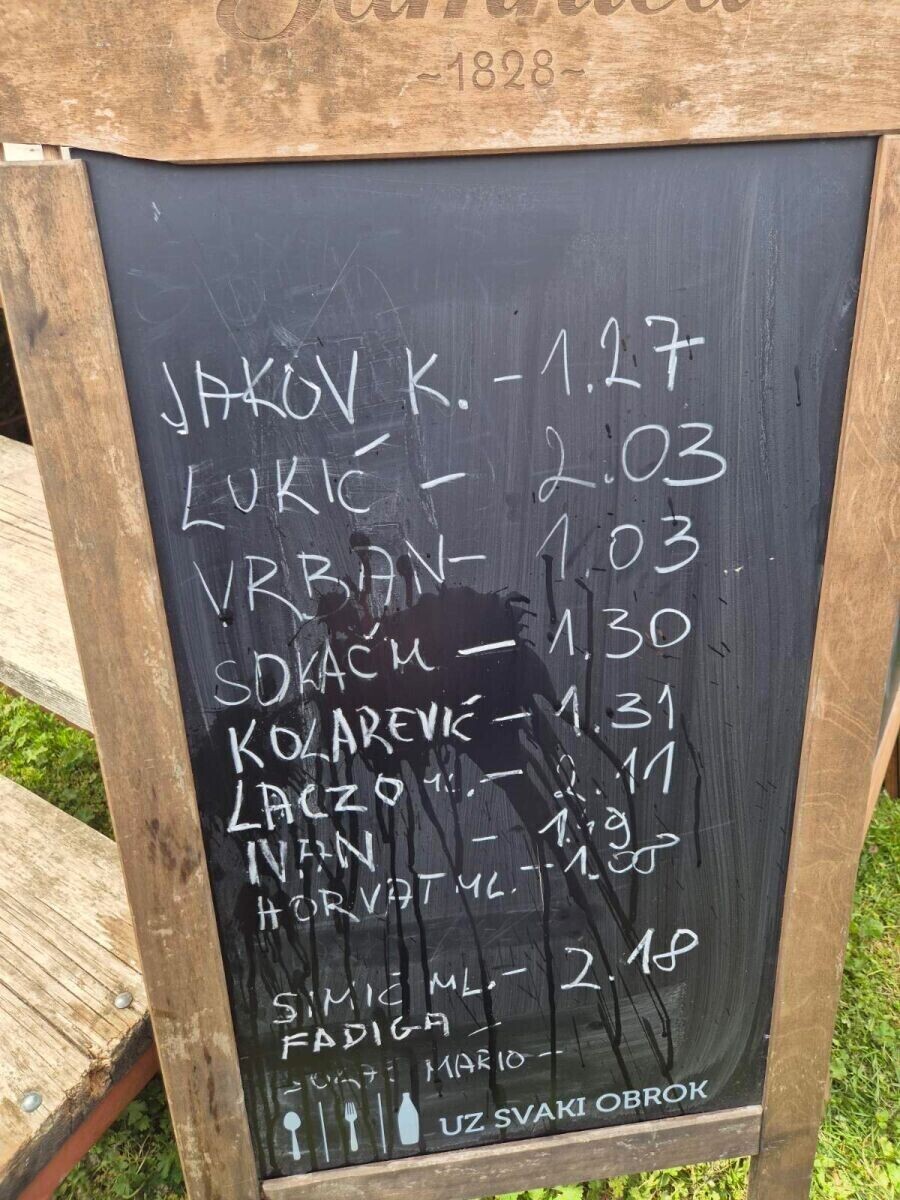 Jamnica
~1828~
JAKOV K. - 1.27
LUKIĆ - 2.03
VRBAN - 1.03
SOKAČ M - 1.30
KOLAREVIĆ - 1.31
LACZO ML. - 2.11
IVAN - 1.19
HORVAT ML. - 1.08
SIMIĆ ML. - 2.18
FADIGA -
MARIO -
UZ SVAKI OBROK